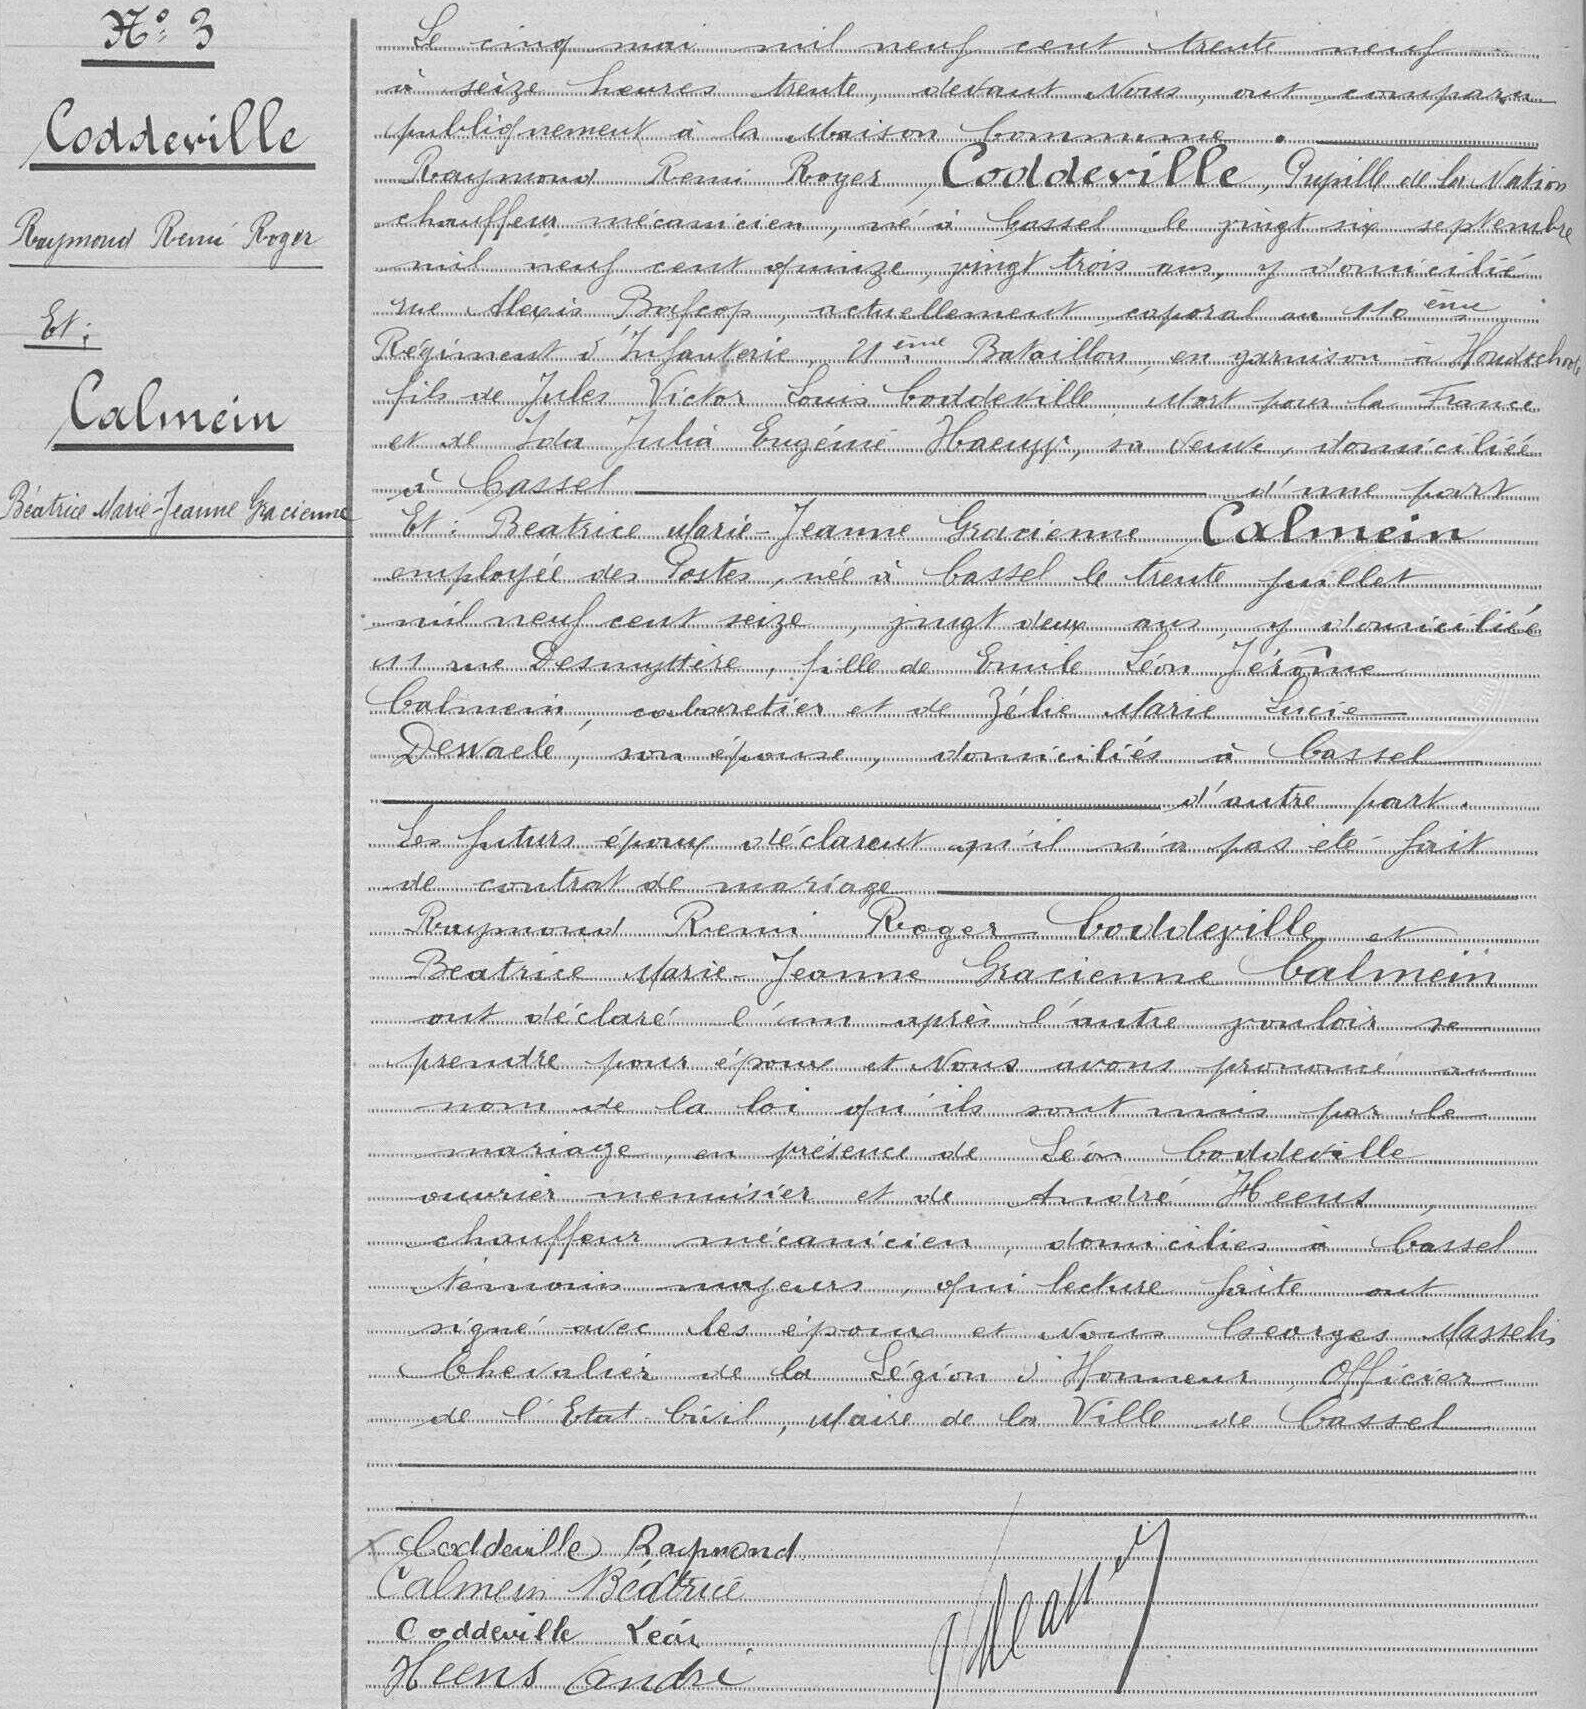 N° 3
Coddeville
Raymond Remi Roger
Et:
Calmein
Béatrice Marie-Jeanne Gracienne
Le cinq mai mil neuf cent trente neuf
à seize heures trente, devant Nous, ont comparu
publiquement à la Maison Commune.
Raymond Remi Roger Coddeville, Pupille de la Nation
chauffeur mécanicien, né à Cassel le vingt six septembre
mil neuf cent quinze, vingt trois ans, y domicilié
rue Alexis Bafcop, actuellement caporal au 110ème
Régiment d'Infanterie, 21ème Bataillon, en garnison à Hondschoote
fils de Jules Victor Louis Coddeville Mort pour la France
et de Ida Julia Eugénie, sa veuve, domiciliée
à Cassel d'une part
Et: Béatrice Marie-Jeanne Gracienne Calmein
employée des Postes, née à Cassel le trente juillet
mil neuf cent seize, vingt deux ans, y domiciliée
11 rue Desmyttère, fille de Emile Léon Jérôme
Calmein, cabaretier et de Zélie Marie Lucie
Dewaele, son épouse, domiciliés à Cassel
d'autre part.
Les futurs époux déclarent qu'il n'a pas été fait
de contrat de mariage
Raymond Remi Roger Coddeville et
Beatrice Marie-Jeanne Gracienne Calmein
ont déclaré l'un après l'autre vouloir se
prendre pour époux et Nous avons prononcé au
nom de la loi qu'ils sont unis par le
mariage, en présence de Léon Coddeville
ouvrier menuisier et de André Heens,
chauffeur mécanicien, domiciliés à Cassel
témoins majeurs, qui lecture faite ont
signé avec les époux et Nous Georges Masselis
Chevalier de la Légion d'Honneur, Officier
de l'Etat-Civil, Maire de la Ville de Cassel
Coddeville Raymond
Calmein Béatrice
Coddeville Léon
Heens André